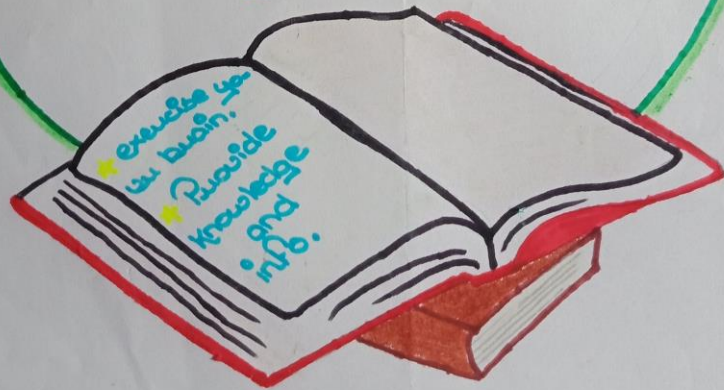 ★ exercise yo-
ur brain.
★ Provide
knowledge
and
info.